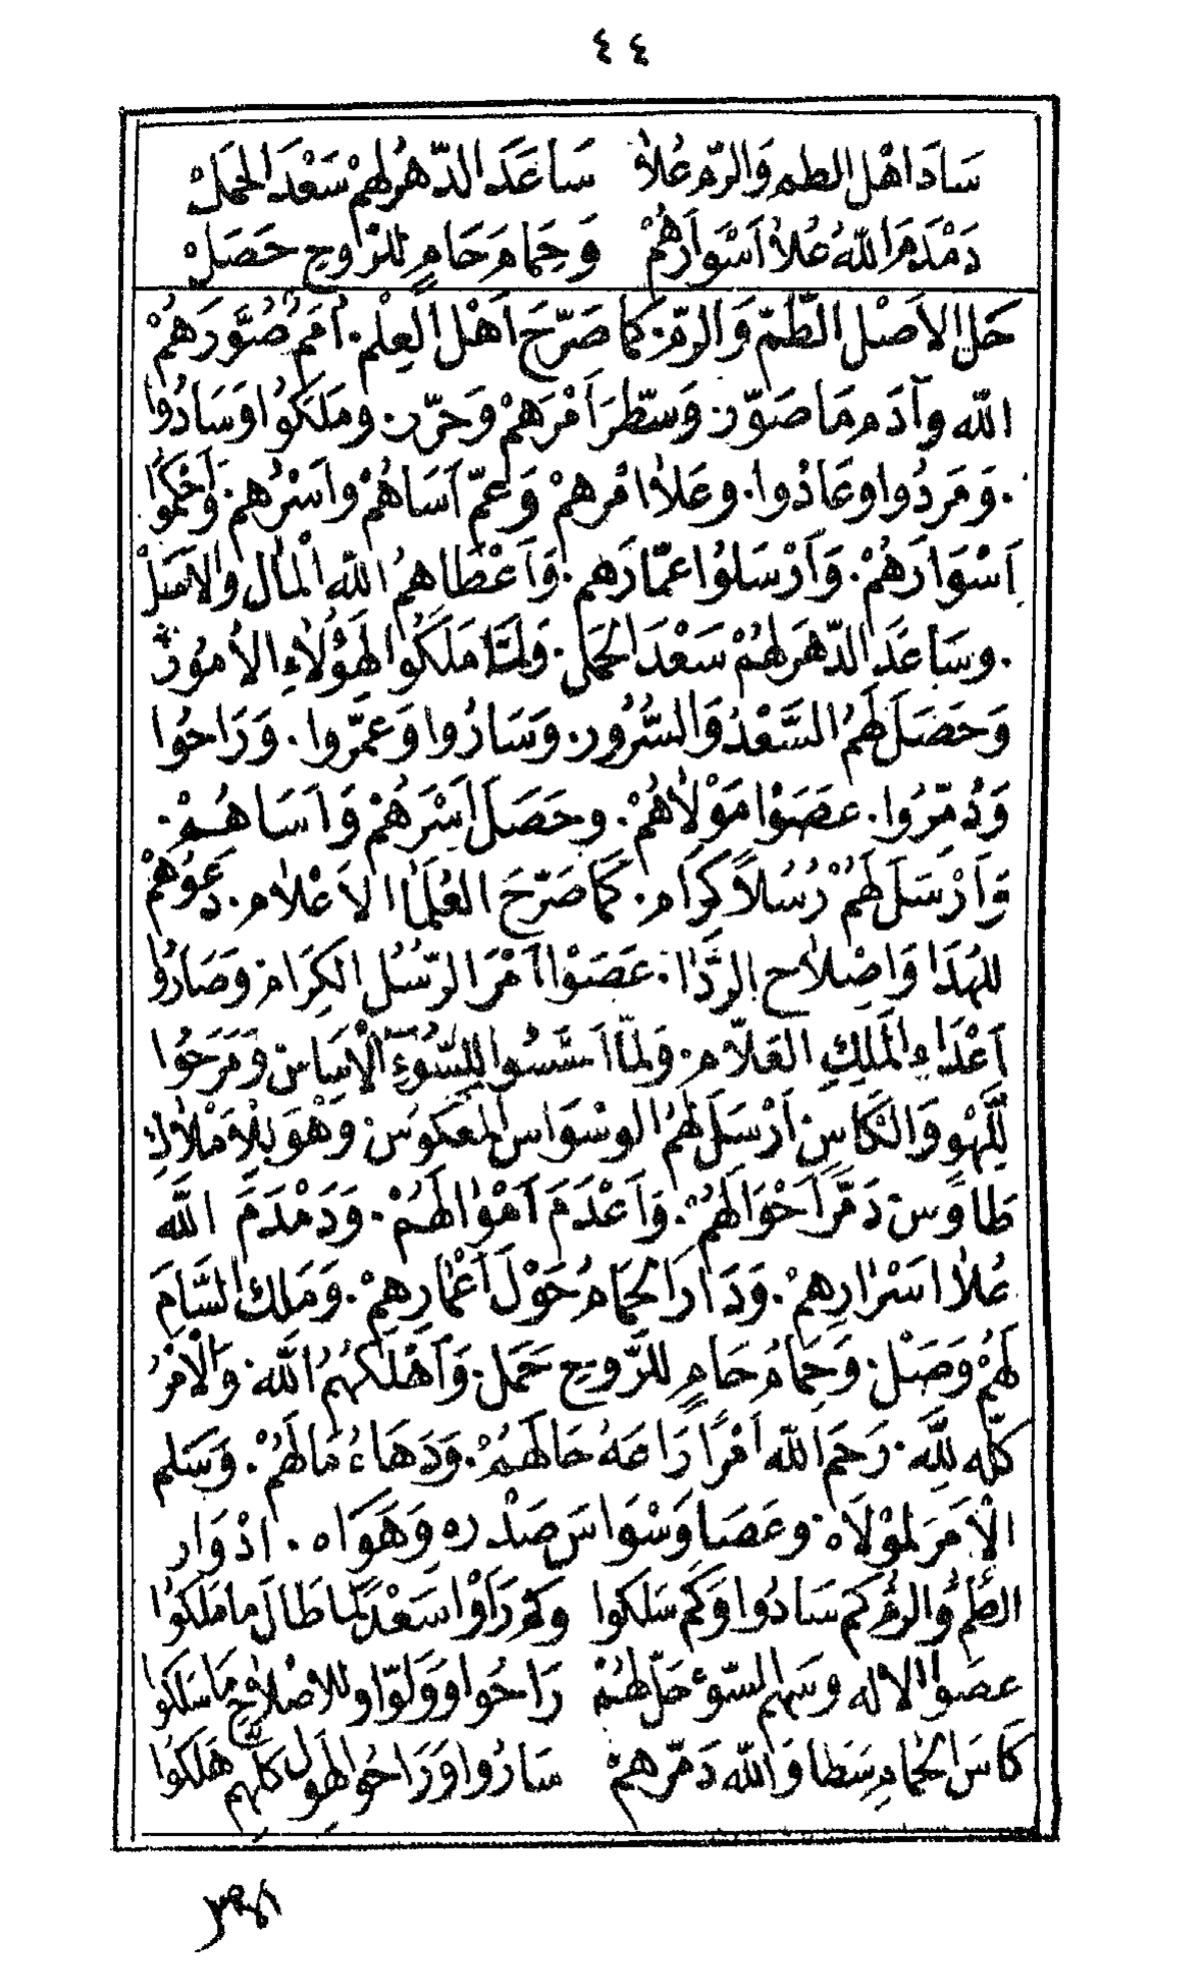 ٤٤
سَادَ اهْلُ الطم وَالرّم عُلاْ سَاعَدَ الدّهْرُ لهمْ سَعْدَ الحَمَلْ
دَمْدَمَ اللهُ عُلاْ اَسْوَارَهُمْ وَحِمَام حَامٍ للرّوحِ حَصَلْ
حَلّ الاَصْل الطّمّ وَالرّمّ. كمَا صَرّحَ اَهْل العِلْم. اُمَمٌ صُوَّرَهُمْ
الله وآدَم مَا صَوّر. وَسطّرَ اَمْرَهمْ وَحرّر. ومَلَكُوْا وَسَادُوْا
. وَمَرَدُوا وعَادُوا. وعَلاْ امْرهمْ وَعمّ اَسَاهُمْ واَسْرُهم. وَاَحْكمُوْا
اَسْوَارَهُمْ. وَاَرْسَلُوْا عمّارَهم. وَاَعْطَاهمُ اللهُ الْمَالَ وَالاَمَلْ
. وسَاعَدَ الدّهْرَ لهُمْ سَعْدَ الحَمَل. وَلمّا مَلَكُوا لهَؤُلاْءِ الاُمُور.
وَحَصَلَ لهمُ السَّعْدُ وَالسُّرُور. وَسَارُوا وَعمّروا. وَرَاحُوا
وَدُمّرُوا. عصَوْا مَوْلاْهُمْ. وحَصَلَ اَسْرَهُمْ وَاَسَاهُمْ.
وَاَرْسَلَ لهُمْ رُسُلاً كرَام. كمَا صَرّحَ العُلَمَا الاَعْلاْم. دَعُوْهُمْ
للهُدَا وَاصْلاْح الرّدَا. عَصَوْا اَمْرَ الرّسُل الكِرَام. وَصَارُوْا
اَعْدَاءِ الْمَلِكِ العَلاّم. وَلمّا اَسَّسُوا لِلسُّوْءِ الْاَسَاس. وَمَرَحُوْا
لِلَّهْوِ وَالكَاس. اَرْسَلَ لهُمُ الوسْوَاس المعَكوُس. وَهْوَ لِلاْمْلاْكِ
طَاوُس. دَمّرَ اَحْوَالَهُمْ. وَاَعْدَمَ اَمْوْالَهُمْ. وَدَمْدَمَ اللّه
عُلاْ اَسْرْارِهمْ. وَدَارَ الحِمَامُ حَوْلَ اَعْمْارِهِمْ. وَمَلك السَّامَ
لَهُمْ وَصَلْ. وَحِمَامُ حَامٍ للرّوحِ حَمَل. وَاَهْلَكهُمُ اللّه. وَالْاَمْرُ
كلّه لِلّه. رَحِمَ اللهُ اَمْرَأً رَاعَهُ حَالهُمْ. وَدَهَاءُ مَالَهُمْ. وَسَلم
الْاَمَرَ لمَوْلَاه. وعَصَا وَسْوَاسَ صَدْره وَهَوَاه. ادْوَار
الطمُّ وَالرمُّ كم سَادُوا وَكَم سَلكوا وكم رَاَوْا سَعْدًا لما طَالَ ما مَلَكُوْا
عصَوا الاله وسَهم السّوءَ حَلّ لهُمْ رَاحُوا وَوَلّوا وللاصْلاْحِ مَا سَلَكوا
كَاسَ الحِمَامِ سَطا وَالله دَمّرهمْ سَارُوا وَرَاحُوْا لهَولٍ كلّهم هَلَكُوْا